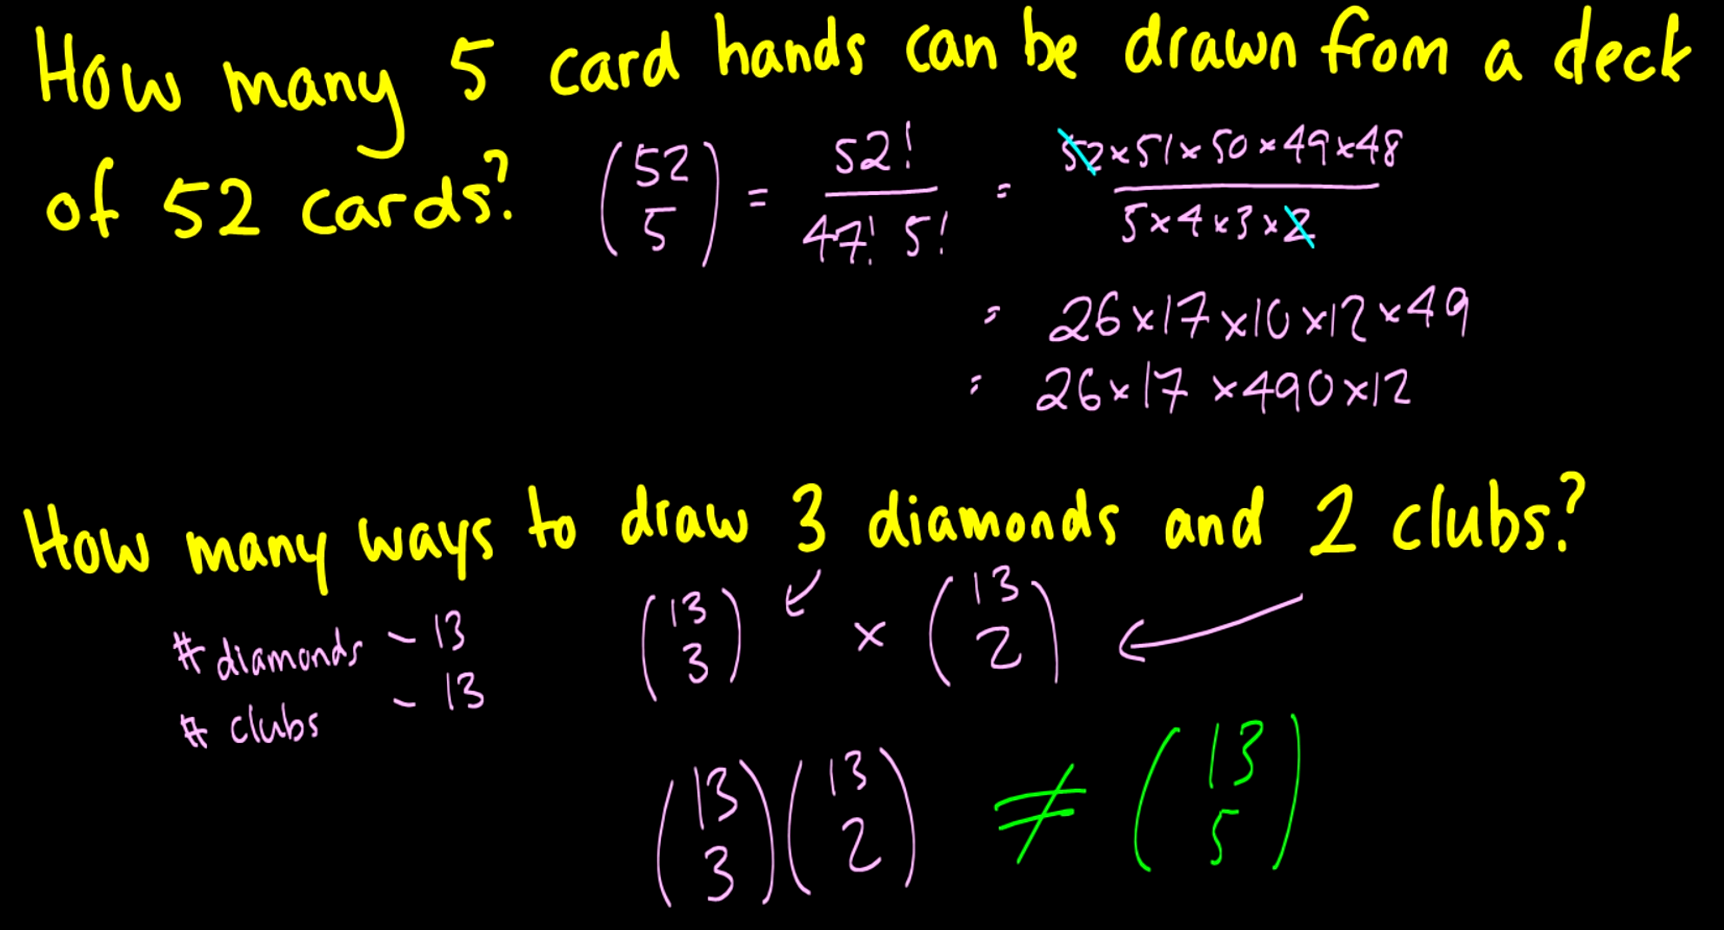 How many 5 card hands can be drawn from a deck
of 52 cards? (52 5) = 52! / 47! 5! = 52×51×50×49×48 / 5×4×3×2
= 26×17×10×12×49
= 26×17×490×12
How many ways to draw 3 diamonds and 2 clubs?
# diamonds – 13
# clubs – 13
(13 3) × (13 2)
(13 3)(13 2) ≠ (13 5)